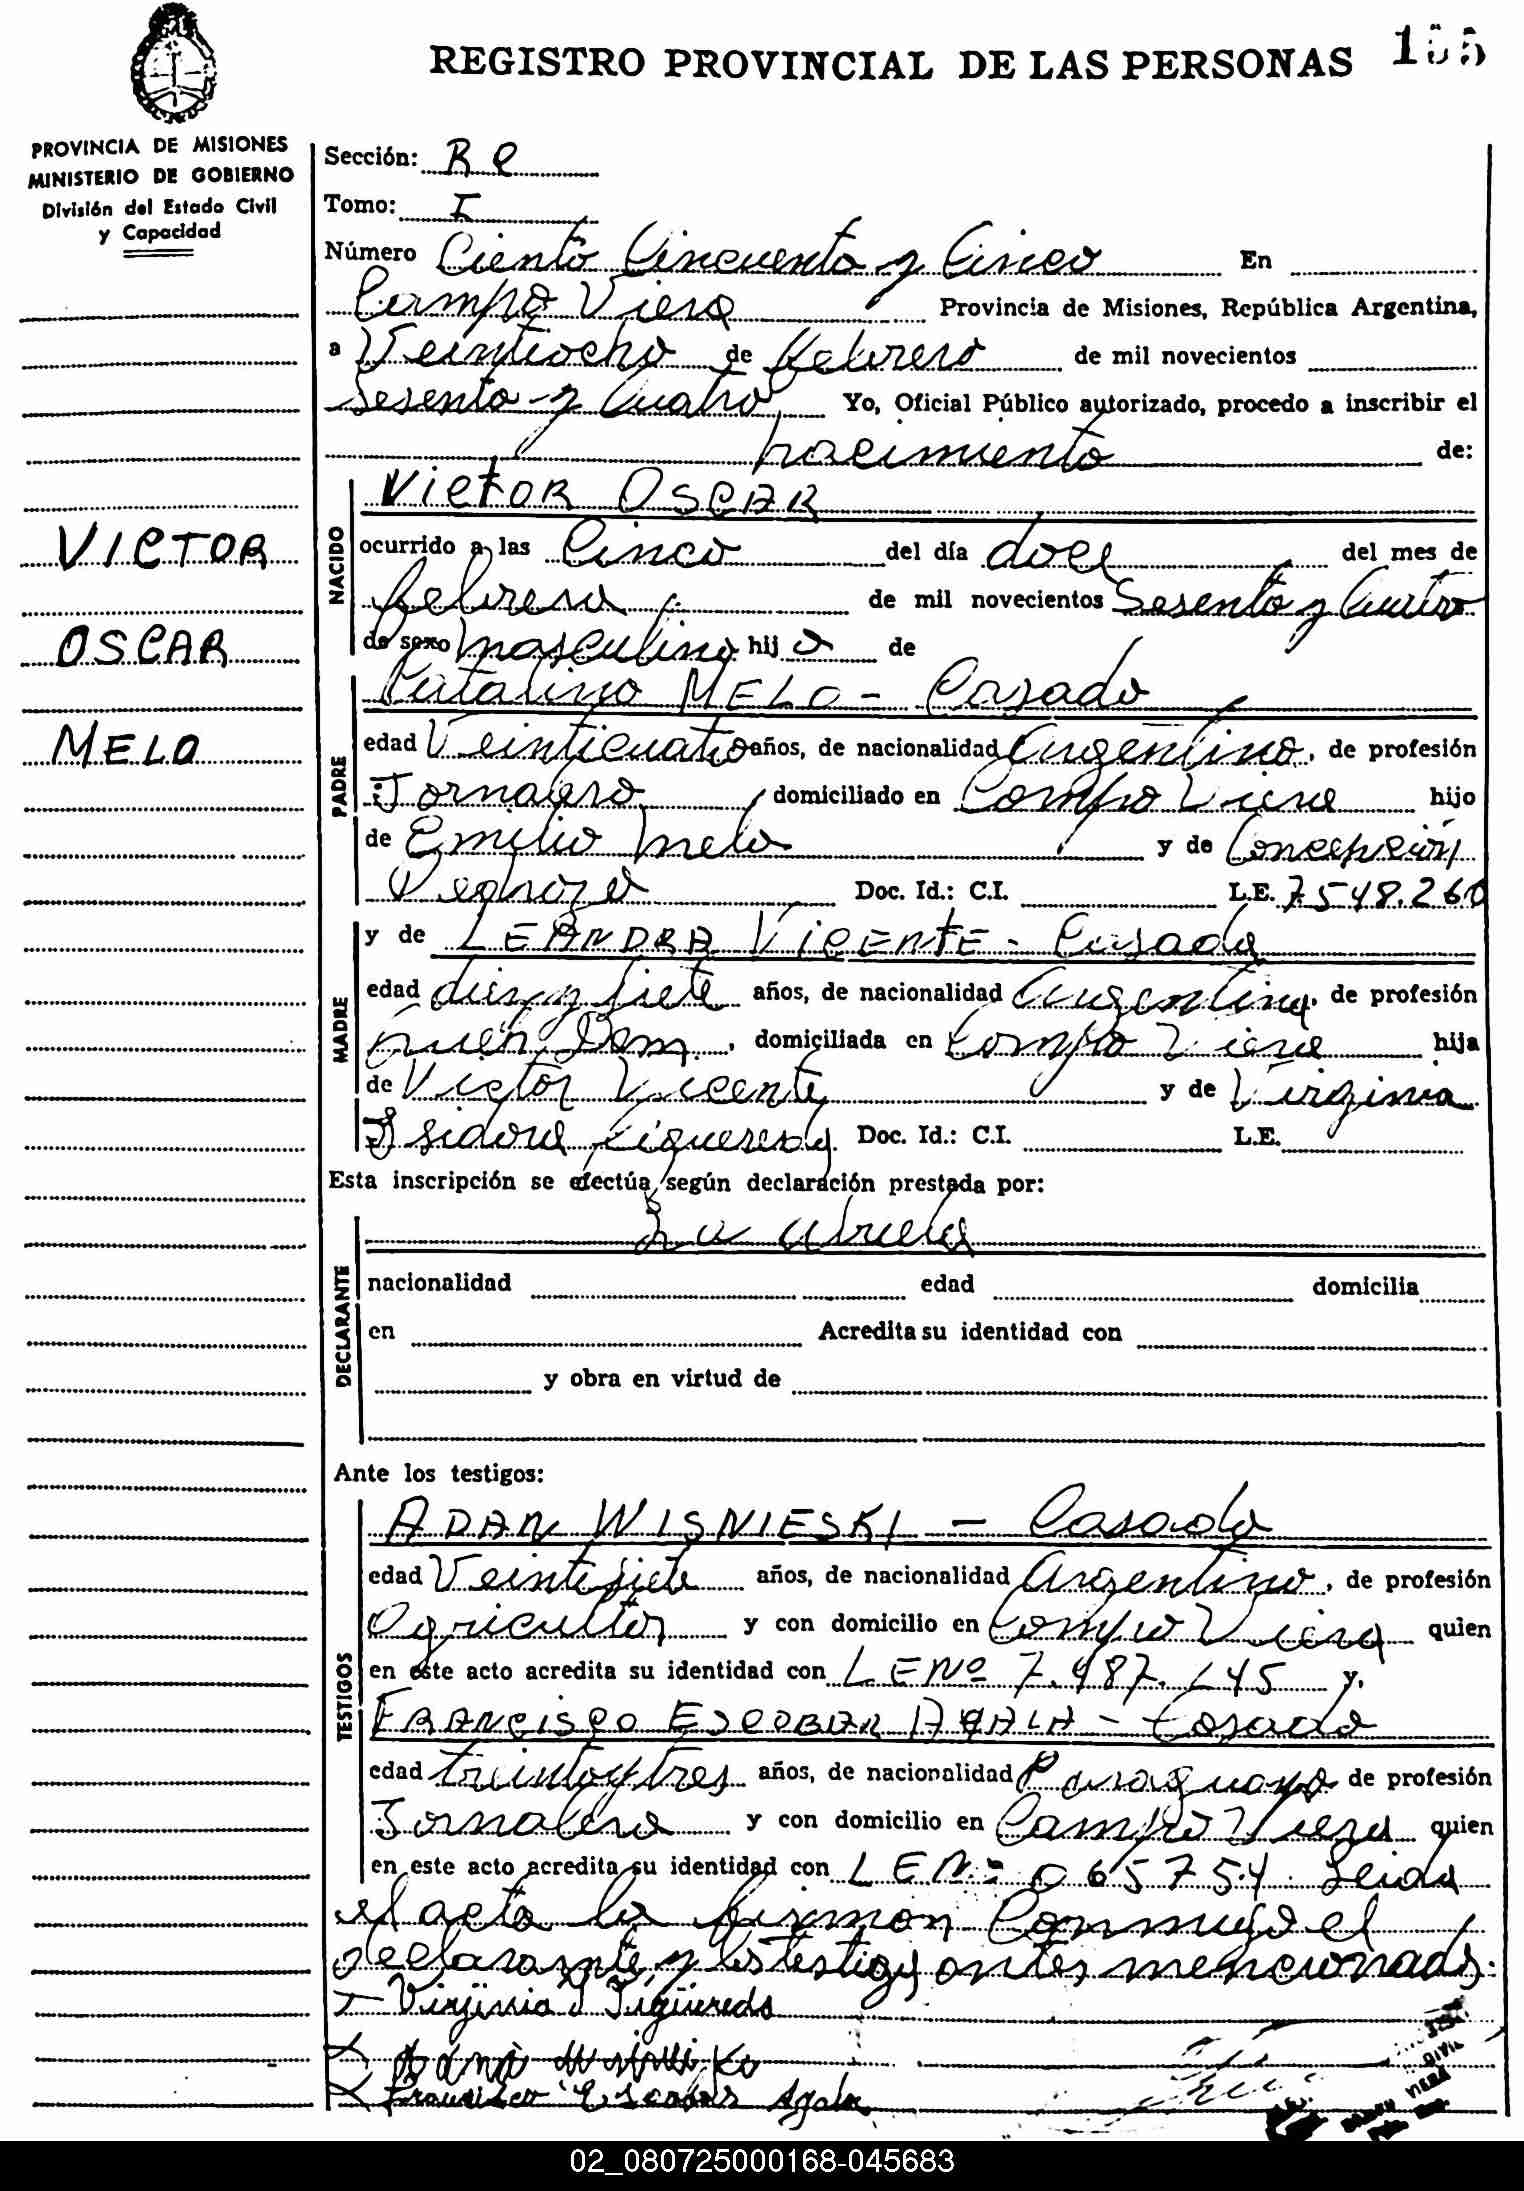 REGISTRO PROVINCIAL DE LAS PERSONAS 155
PROVINCIA DE MISIONES
MINISTERIO DE GOBIERNO
División del Estado Civil
y Capacidad
VICTOR
OSCAR
MELO
Sección: R e
Tomo: I
Número Ciento Cincuenta y Cinco En
Campo Viera Provincia de Misiones, República Argentina,
a Veintiocho de Febrero de mil novecientos
Sesenta y Cuatro Yo, Oficial Público autorizado, procedo a inscribir el
nacimiento de:
NACIDO
VICTOR OSCAR
ocurrido a las Cinco del día doce del mes de
febrero de mil novecientos Sesenta y Cuatro
de sexo masculino hijo de
PADRE
Catalino MELO - Casado
edad Veinticuatro años, de nacionalidad Argentino, de profesión
Jornalero domiciliado en Campo Viera hijo
de Emilio Melo y de Concepción
Doc. Id.: C.I. L.E. 7.548.260
MADRE
y de LEANDRA VICENTE - Casada
edad diez y siete años, de nacionalidad Argentina, de profesión
Queh. Dom., domiciliada en Campo Viera hija
de Victor Vicente y de Virginia
Isidora Figueredo Doc. Id.: C.I. L.E.
Esta inscripción se efectúa según declaración prestada por:
DECLARANTE
La abuela
nacionalidad edad domicilia
en Acredita su identidad con
y obra en virtud de
Ante los testigos:
TESTIGOS
ADAN WISNIESKI - Casado
edad Veintisiete años, de nacionalidad Argentino, de profesión
Agricultor y con domicilio en Campo Viera quien
en este acto acredita su identidad con L E Nº 7.487.145 y,
FRANCISCO ESCOBAR AYALA - Casado
edad treinta y tres años, de nacionalidad Paraguayo de profesión
Jornalero y con domicilio en Campo Viera quien
en este acto acredita su identidad con L E N: 065754. Leida
el acta la firman Conmigo el
declarante y los testigos antes mencionads.
Virjinia I Figueredo
Francisco Escobar Ayala
02_080725000168-045683